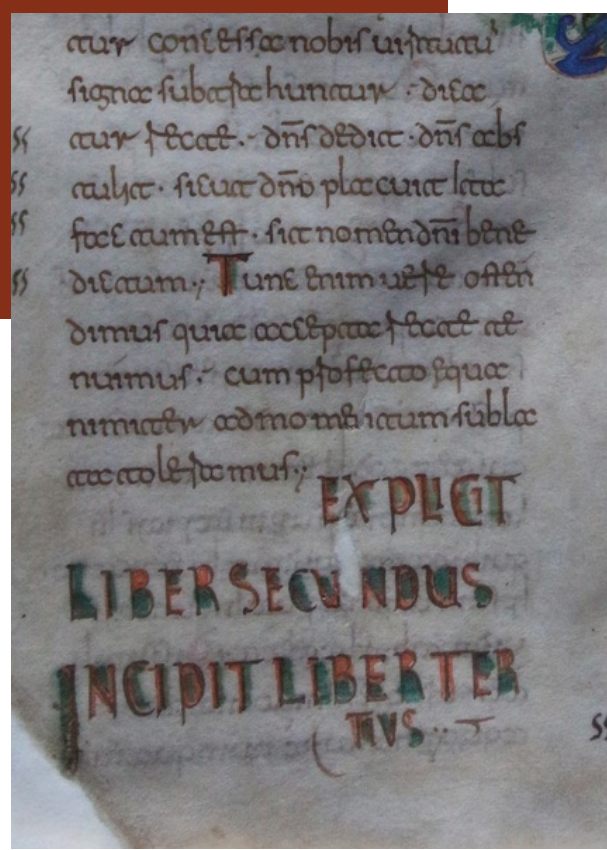 tur concessa nobis uirtutū
signa subtrahuntur · dica
tur recte · dn̄s dedit · dn̄s abs
tulit · sicut dn̄o placuit ita
factum est · sit nomen dn̄i bene
dictum ·, Tunc enim uere osten
dimus quia accepta recte te
nuimus · cum profecto equa
nimiter ad momentum subla
ta toleramus ·, EXPLICIT
LIBER SECUNDUS
INCIPIT LIBER TER
TIUS